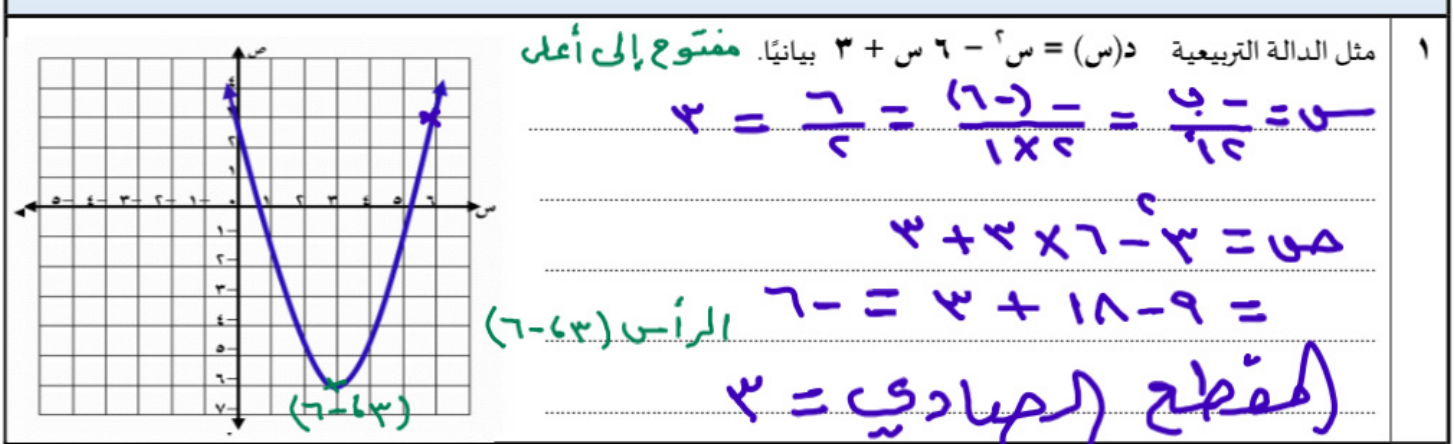 ١ مثل الدالة التربيعية د(س) = س٢ − ٦ س + ٣ بيانيًا. مفتوح إلى أعلى
س = −ب / ٢أ = −(−٦) / ٢×١ = ٦ / ٢ = ٣
ص = ٣٢ − ٦ × ٣ + ٣
= ٩ − ١٨ + ٣ = −٦
الرأس (٣، −٦)
المقطع الصادي = ٣
ص
٤
٢
١
−٥ −٤ −٣ −٢ −١ ٠ ١ ٢ ٣ ٤ ٥ ٦ س
−١
−٢
−٣
−٤
−٥
−٦
−٧
(٣، −٦)